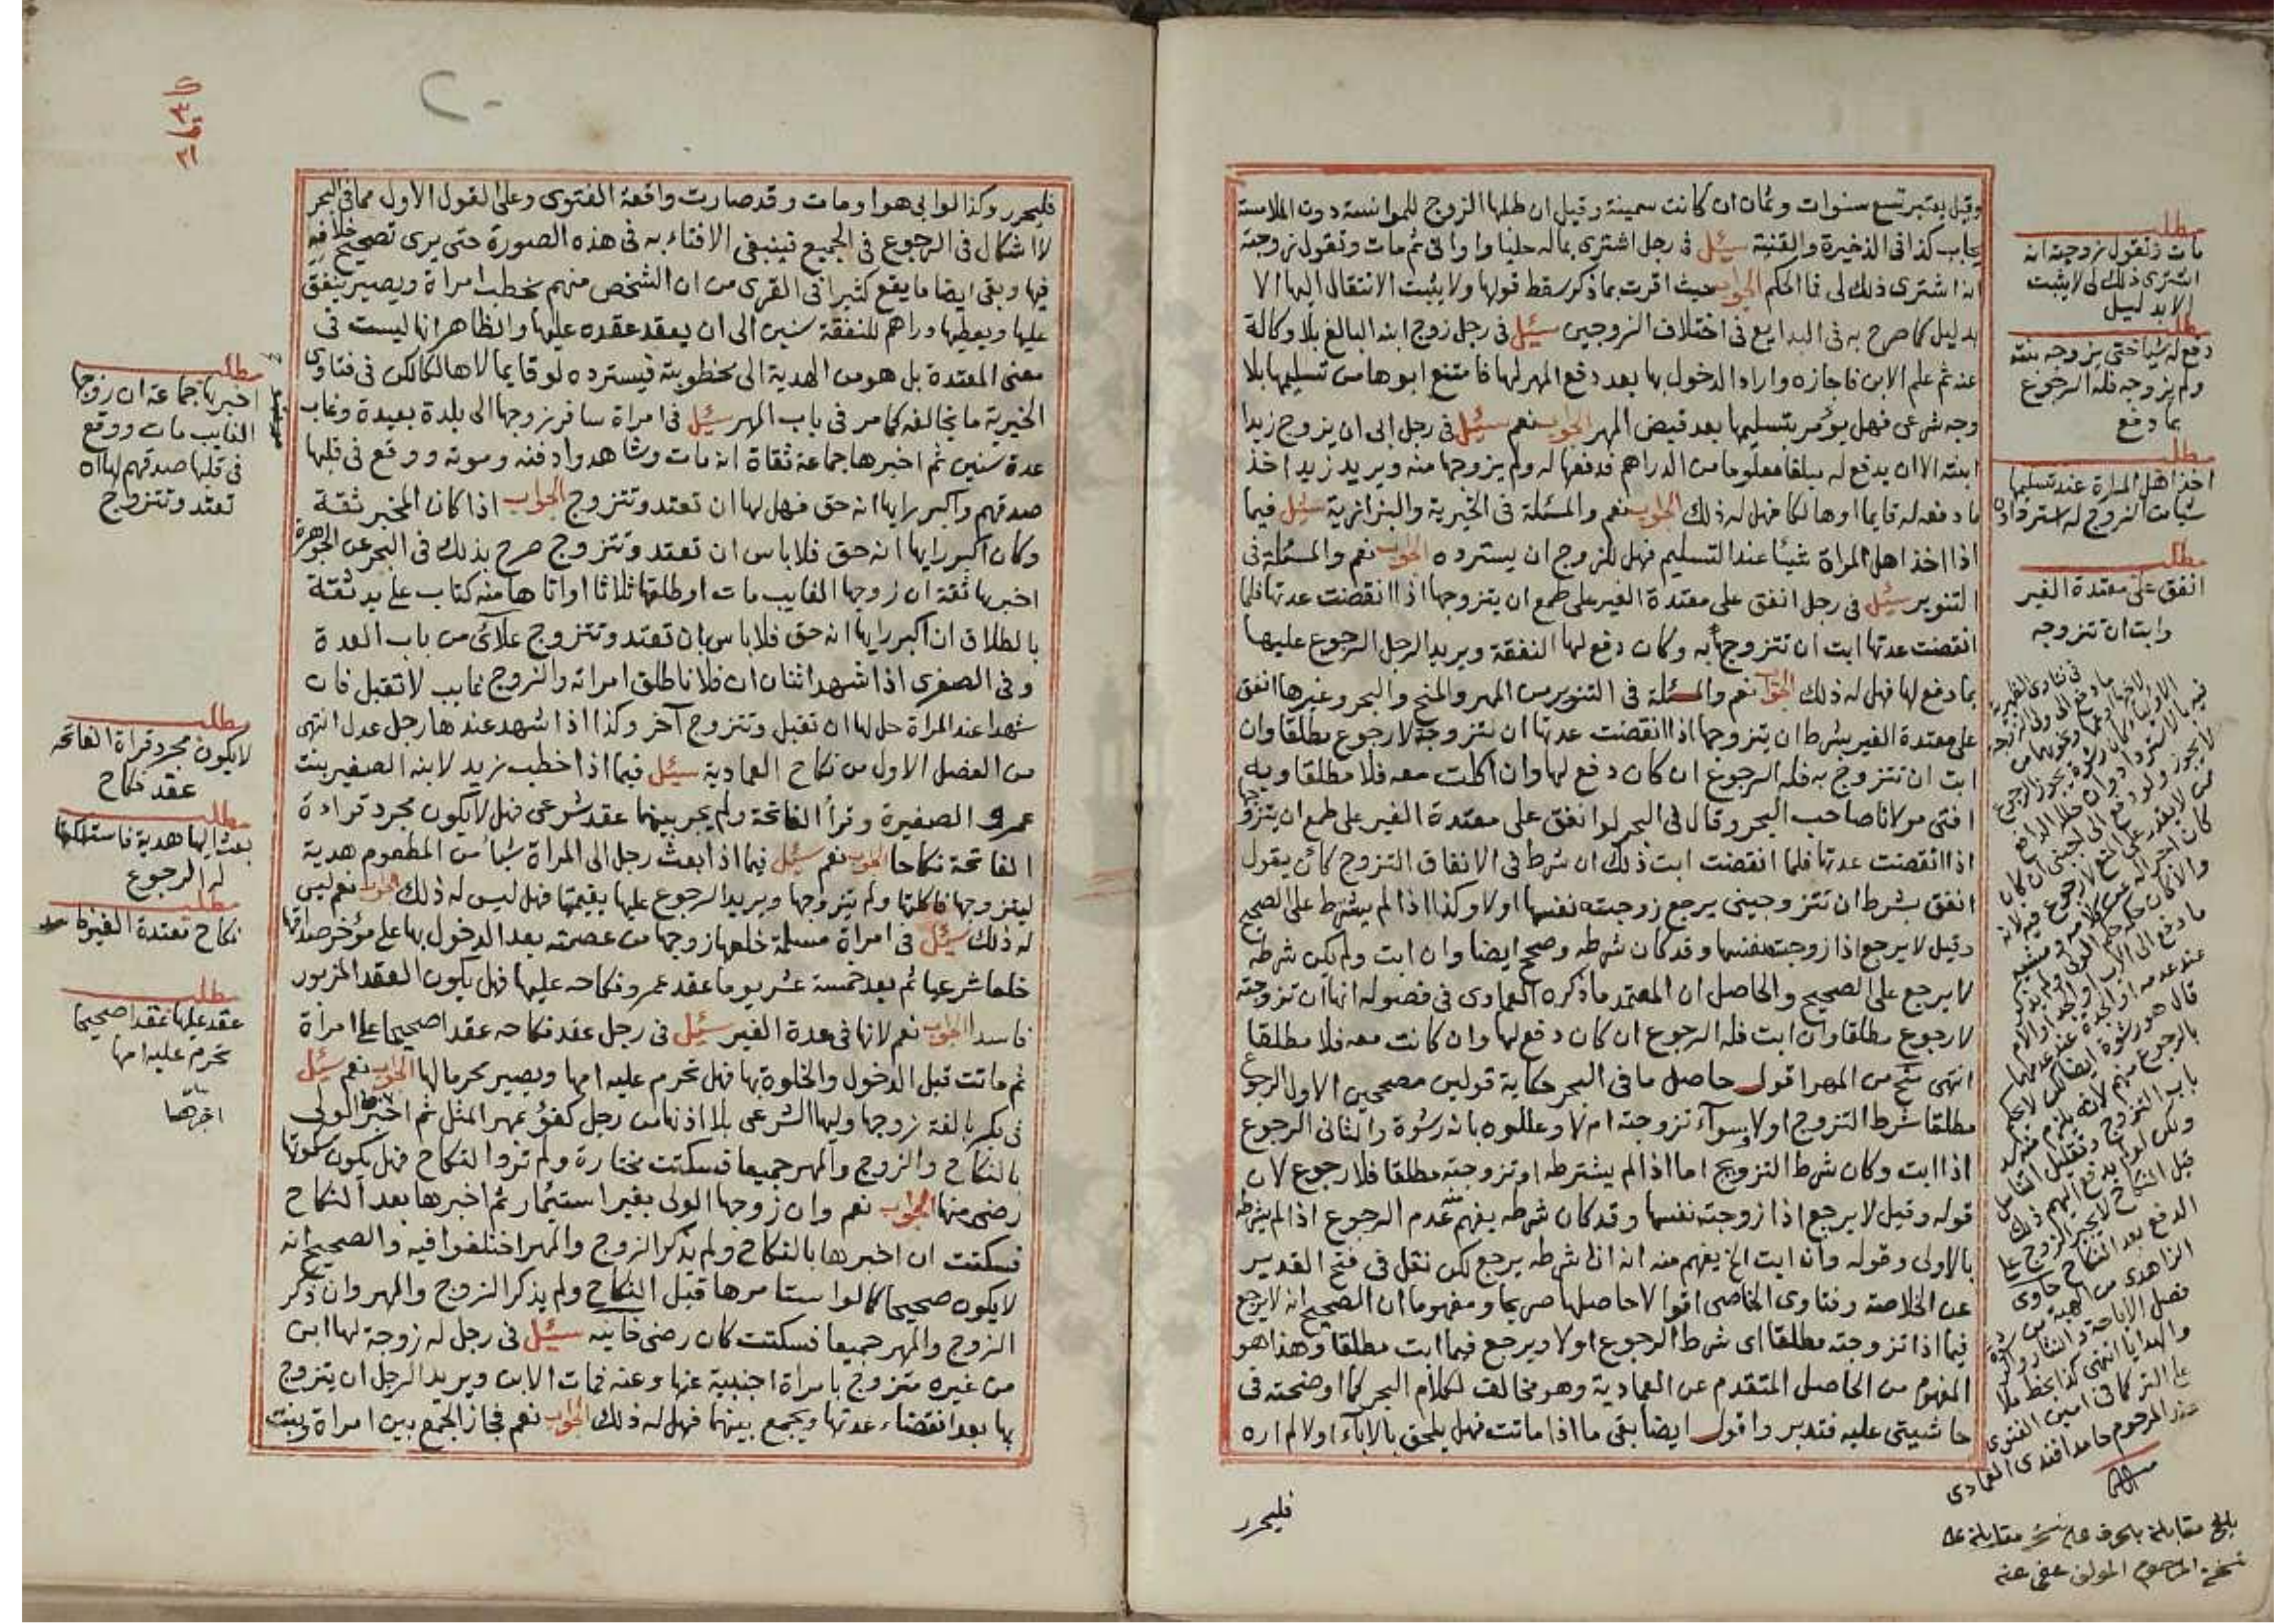 وقيل يعتبر تسع سنوات وثمان ان كانت سمينة وقيل ان طلبها الزوج للموانسة دون الملامسة
يجاب كذا في الذخيرة والقنية سئل في رجل اشترى بماله حليا واواني ثم مات وتقول زوجته
انه اشترى ذلك لي فما الحكم الجواب حيث اقرت بما ذكر سقط قولها ولا يثبت الانتقال اليها الا
بدليل كما صرح به في البدايع في اختلاف الزوجين سئل في رجل زوج ابنه البالغ بلا وكالة
عنه ثم علم الابن فاجازه واراد الدخول بها بعد دفع المهر لها فامتنع ابوها من تسليمها بلا
وجه شرعي فهل يؤمر بتسليمها بعد قبض المهر الجواب نعم سئل في رجل ابى ان يزوج زيدا
ابنته الا ان يدفع له مبلغا معلوما من الدراهم فدفعها له ولم يزوجها منه ويريد زيد اخذ
ما دفعه له قايما او هالكا فهل له ذلك الجواب نعم والمسئلة في الخيرية والبزازية سئل فيما
اذا اخذ اهل المراة شيئا عند التسليم فهل للزوج ان يسترده الجواب نعم والمسئلة في
التنوير سئل في رجل انفق على معتدة الغير على طمع ان يتزوجها اذا انقضت عدتها فلما
انقضت عدتها ابت ان تتزوج به وكان دفع لها النفقة ويريد الرجل الرجوع عليها
بما دفع لها فهل له ذلك الجواب نعم والمسئلة في التنوير من المهر والمنح والبحر وغيرها انفق
على معتدة الغير بشرط ان يتزوجها اذا انقضت عدتها ان تزوجته لا رجوع مطلقا وان
ابت ان تتزوج به فله الرجوع ان كان دفع لها وان اكلت معه فلا مطلقا وبه
افتى مولانا صاحب البحر وقال في البحر لو انفق على معتدة الغير على طمع ان يتزوجها
اذا انقضت عدتها فلما انقضت ابت ذلك ان شرط في الانفاق التزوج كأن يقول
انفق بشرط ان تتزوجيني يرجع زوجت نفسها اولا وكذا اذا لم يشترط على الصحيح
وقيل لا يرجع اذا زوجت نفسها وقد كان شرطه وصحح ايضا وان ابت ولم يكن شرطه
لا يرجع على الصحيح والحاصل ان المعتمد ما ذكره العمادي في فصوله انها ان تزوجته
لا رجوع مطلقا وان ابت فله الرجوع ان كان دفع لها وان كانت معه فلا مطلقا
انتهى منح من المهر اقول حاصل ما في البحر حكاية قولين مصححين الاول الرجوع
مطلقا شرط التزوج اولا وسوآء تزوجته ام لا وعللوه بانه رشوة والثاني الرجوع
اذا ابت وكان شرط التزويج اما اذا لم يشترطه او تزوجته مطلقا فلا رجوع لان
قوله وقيل لا يرجع اذا زوجته نفسها وقد كان شرطه يفهم عدم الرجوع اذا لم يشرطه
بالاولى وقوله وان ابت الخ يفهم منه انه اذا شرطه يرجع لكن نقل في فتح القدير
عن الخلاصة وفتاوى الخاصي اقوالا حاصلها صريحا ومفهوما ان الصحيح انه لا يرجع
فيما اذا تزوجته مطلقا اي شرط الرجوع اولا ويرجع فيما ابت مطلقا وهذا هو
المفهوم من الحاصل المتقدم عن العمادية وهو مخالف لكلام البحر كما اوضحته في
حاشيتي عليه فتدبر واقول ايضا بقي ما اذا ماتت فهل يلحق بالاباء اولا لم اره
فليحرر
مطلب
مات وتقول زوجته انه
اشترى ذلك لي لا يثبت
الا بدليل
مطلب
دفع له شيا حتى يزوجه بنته
ولم يزوجه فله الرجوع
بما دفع
مطلب
اخذ اهل المراة عند تسليمها
شيا من الزوج له استرداده
مطلب
انفق على معتدة الغير
وابت ان تتزوجه
بلغ مقابلة بحرف على مقابلة على
نسخة المرحوم المولف عفي عنه
فليحرر وكذا لو ابى هو او مات وقد صارت واقعة الفتوى وعلى القول الاول مما في البحر
لا اشكال في الرجوع في الجميع فينبغي الافتاء به في هذه الصورة حتى يرى تصحيح خلافه
فيها وبقي ايضا ما يقع كثيرا في القرى من ان الشخص منهم يخطب امراة ويصير ينفق
عليها ويعطيها دراهم للنفقة سنين الى ان يعقد عقده عليها والظاهر انها ليست في
معنى المعتدة بل هو من الهدية الى مخطوبته فيسترده لو قايما لا هالكا لكن في فتاوى
الخيرية ما يخالفه كما مر في باب المهر سئل في امراة سافر زوجها الى بلدة بعيدة وغاب
عدة سنين ثم اخبرها جماعة ثقاة انه مات وشاهدوا دفنه وموته ووقع في قلبها
صدقهم واكبر رايها انه حق فهل لها ان تعتد وتتزوج الجواب اذا كان المخبر ثقة
وكان اكبر رايها انه حق فلا باس ان تعتد وتتزوج صرح بذلك في البحر عن الجوهرة
اخبرها ثقة ان زوجها الغايب مات او طلقها ثلاثا او اتاها منه كتاب على يد ثقة
بالطلاق ان اكبر رايها انه حق فلا باس بان تعتد وتتزوج علائي من باب العدة
وفي الصغرى اذا شهد اثنان ان فلانا طلق امراته والزوج غايب لا تقبل فان
شهدا عند المراة حل لها ان تقبل وتتزوج آخر وكذا اذا شهد عندها رجل عدل انتهى
من الفصل الاول من نكاح العمادية سئل فيما اذا خطب زيد لابنه الصغير بنت
عمرو الصغيرة وقرأ الفاتحة ولم يجر بينهما عقد شرعي فهل لا يكون مجرد قراءة
الفاتحة نكاحا الجواب نعم سئل فيما اذا بعث رجل الى المراة شيأ من المطعوم هدية
ليتزوجها فاكلتها ولم يتزوجها ويريد الرجوع عليها بقيمتها فهل ليس له ذلك الجواب نعم ليس
له ذلك سئل في امراة مسلمة خلعها زوجها من عصمته بعد الدخول بها على مؤخر صداقها
خلعا شرعيا ثم بعد خمسة عشر يوما عقد عمرو نكاحه عليها فهل يكون العقد المزبور
فاسدا الجواب نعم لانها في عدة الغير سئل في رجل عقد نكاحه عقدا صحيحا على امراة
ثم ماتت قبل الدخول والخلوة بها فهل تحرم عليه امها ويصير محرما لها الجواب نعم سئل
في بكر بالغة زوجها وليها الشرعي بلا اذنها من رجل كفؤ بمهر المثل ثم اخبرها الولي
بالنكاح والزوج والمهر جميعا فسكتت مختارة ولم ترد النكاح فهل يكون سكوتها
رضى منها الجواب نعم وان زوجها الولي بغير استئمار ثم اخبرها بعد النكاح
فسكتت ان اخبرها بالنكاح ولم يذكر الزوج والمهر اختلفوا فيه والصحيح انه
لا يكون صحيحا كما لو استامرها قبل النكاح ولم يذكر الزوج والمهر وان ذكر
الزوج والمهر جميعا فسكتت كان رضى خانيه سئل في رجل له زوجة لها ابن
من غيره متزوج بامراة اجنبية عنها وعنه فمات الابن ويريد الرجل ان يتزوج
بها بعد انقضاء عدتها ويجمع بينهما فهل له ذلك الجواب نعم فجاز الجمع بين امراة وبنت
مطلب
اخبرها جماعة ان زوجها
الغايب مات ووقع
في قلبها صدقهم لها ان
تعتد وتتزوج
مطلب
لا يكون مجرد قراة الفاتحة
عقد نكاح
مطلب
بعث اليها هدية فاستهلكتها
له الرجوع
مطلب
نكاح معتدة الغير
مطلب
عقد عليها عقدا صحيحا
تحرم عليه امها